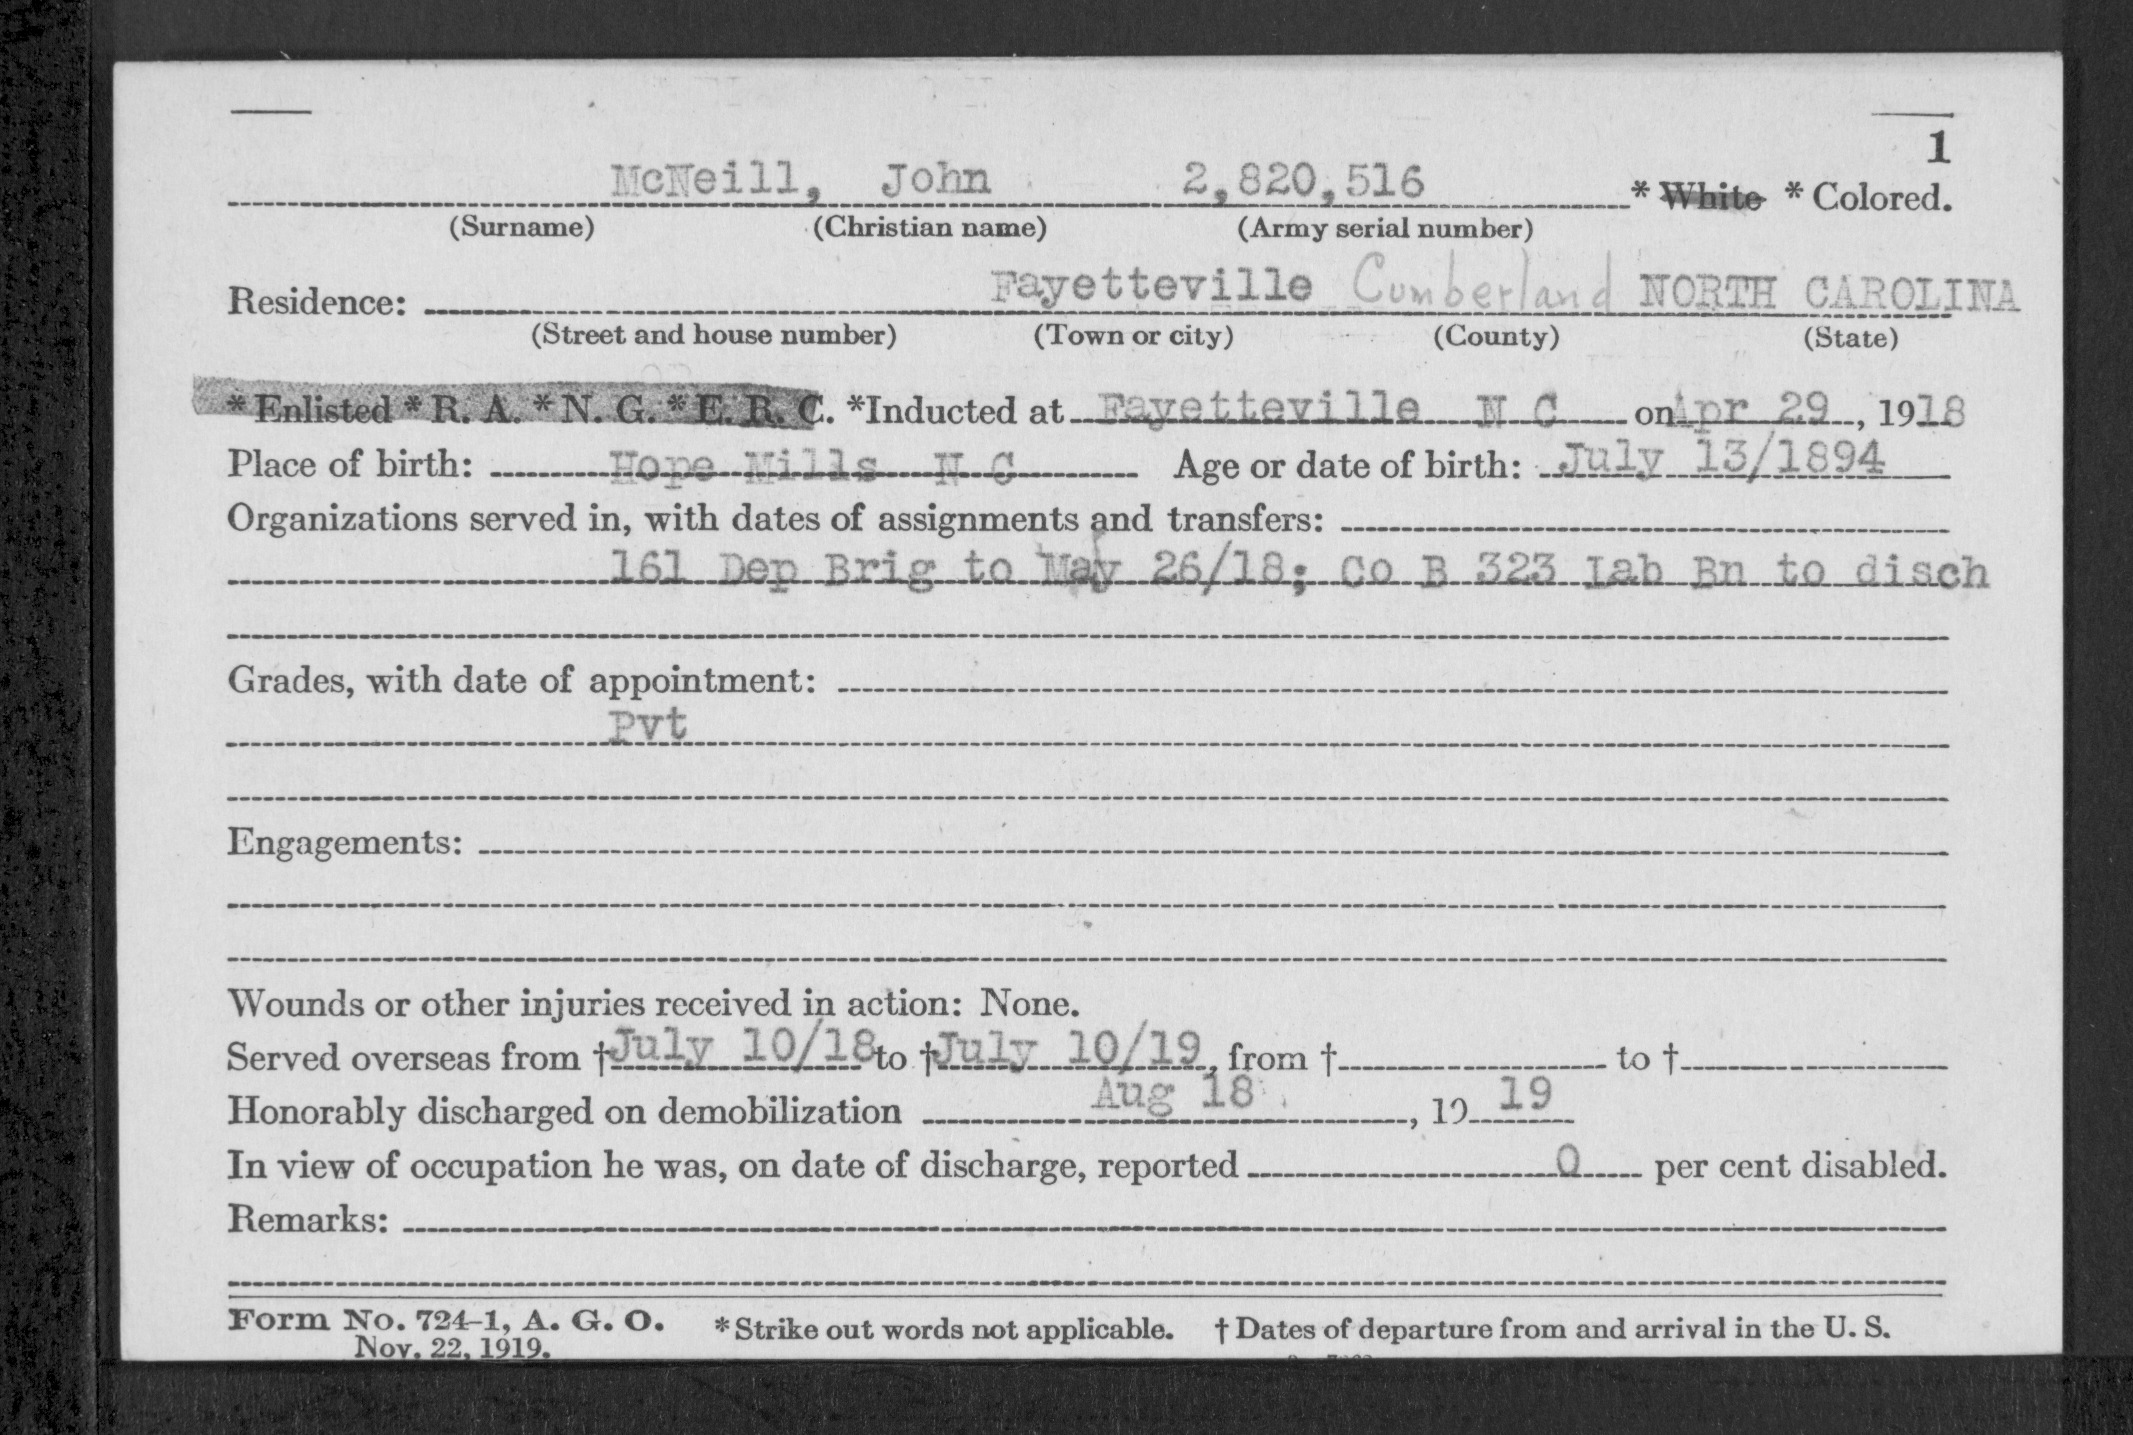 1
McNeill, John 2,820,516 * White * Colored.
(Surname) (Christian name) (Army serial number)
Residence: Fayetteville Cumberland NORTH CAROLINA
(Street and house number) (Town or city) (County) (State)
* Enlisted * R. A. * N. G. * E. R. C. *Inducted at Fayetteville N C on Apr 29, 1918
Place of birth: Hope Mills N C Age or date of birth: July 13/1894
Organizations served in, with dates of assignments and transfers:
161 Dep Brig to May 26/18; Co B 323 Lab Bn to disch
Grades, with date of appointment:
Pvt
Engagements:
Wounds or other injuries received in action: None.
Served overseas from † July 10/18 to † July 10/19, from † to †
Honorably discharged on demobilization Aug 18, 19 19
In view of occupation he was, on date of discharge, reported 0 per cent disabled.
Remarks:
Form No. 724-1, A. G. O. * Strike out words not applicable. † Dates of departure from and arrival in the U. S.
Nov. 22, 1919.